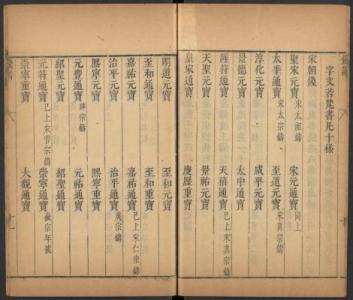 字文若梵書凡十樣
宋朝錢
聖宋元寶 宋太祖鑄 宋元通寶 同上
太平通寶 宋太宗鑄 至道元寶
淳化元寶 咸平元寶
景德元寶 太中通寶
祥符通寶 天禧通寶 已上宋真宗鑄
天聖元寶 景祐元寶
皇宋通寶 慶歷重寶
明道元寶 至和元寶
至和通寶 至和重寶
嘉祐元寶 嘉祐通寶 已上宋仁宗鑄
治平元寶 治平通寶 英宗鑄
熙寧元寶 熙寧重寶
元豐通寶 神宗鑄 元祐通寶
紹聖元寶 紹聖通寶
元符通寶 已上宋哲宗鑄 崇寧通寶 徽宗年號
崇寧重寶 大觀通寶